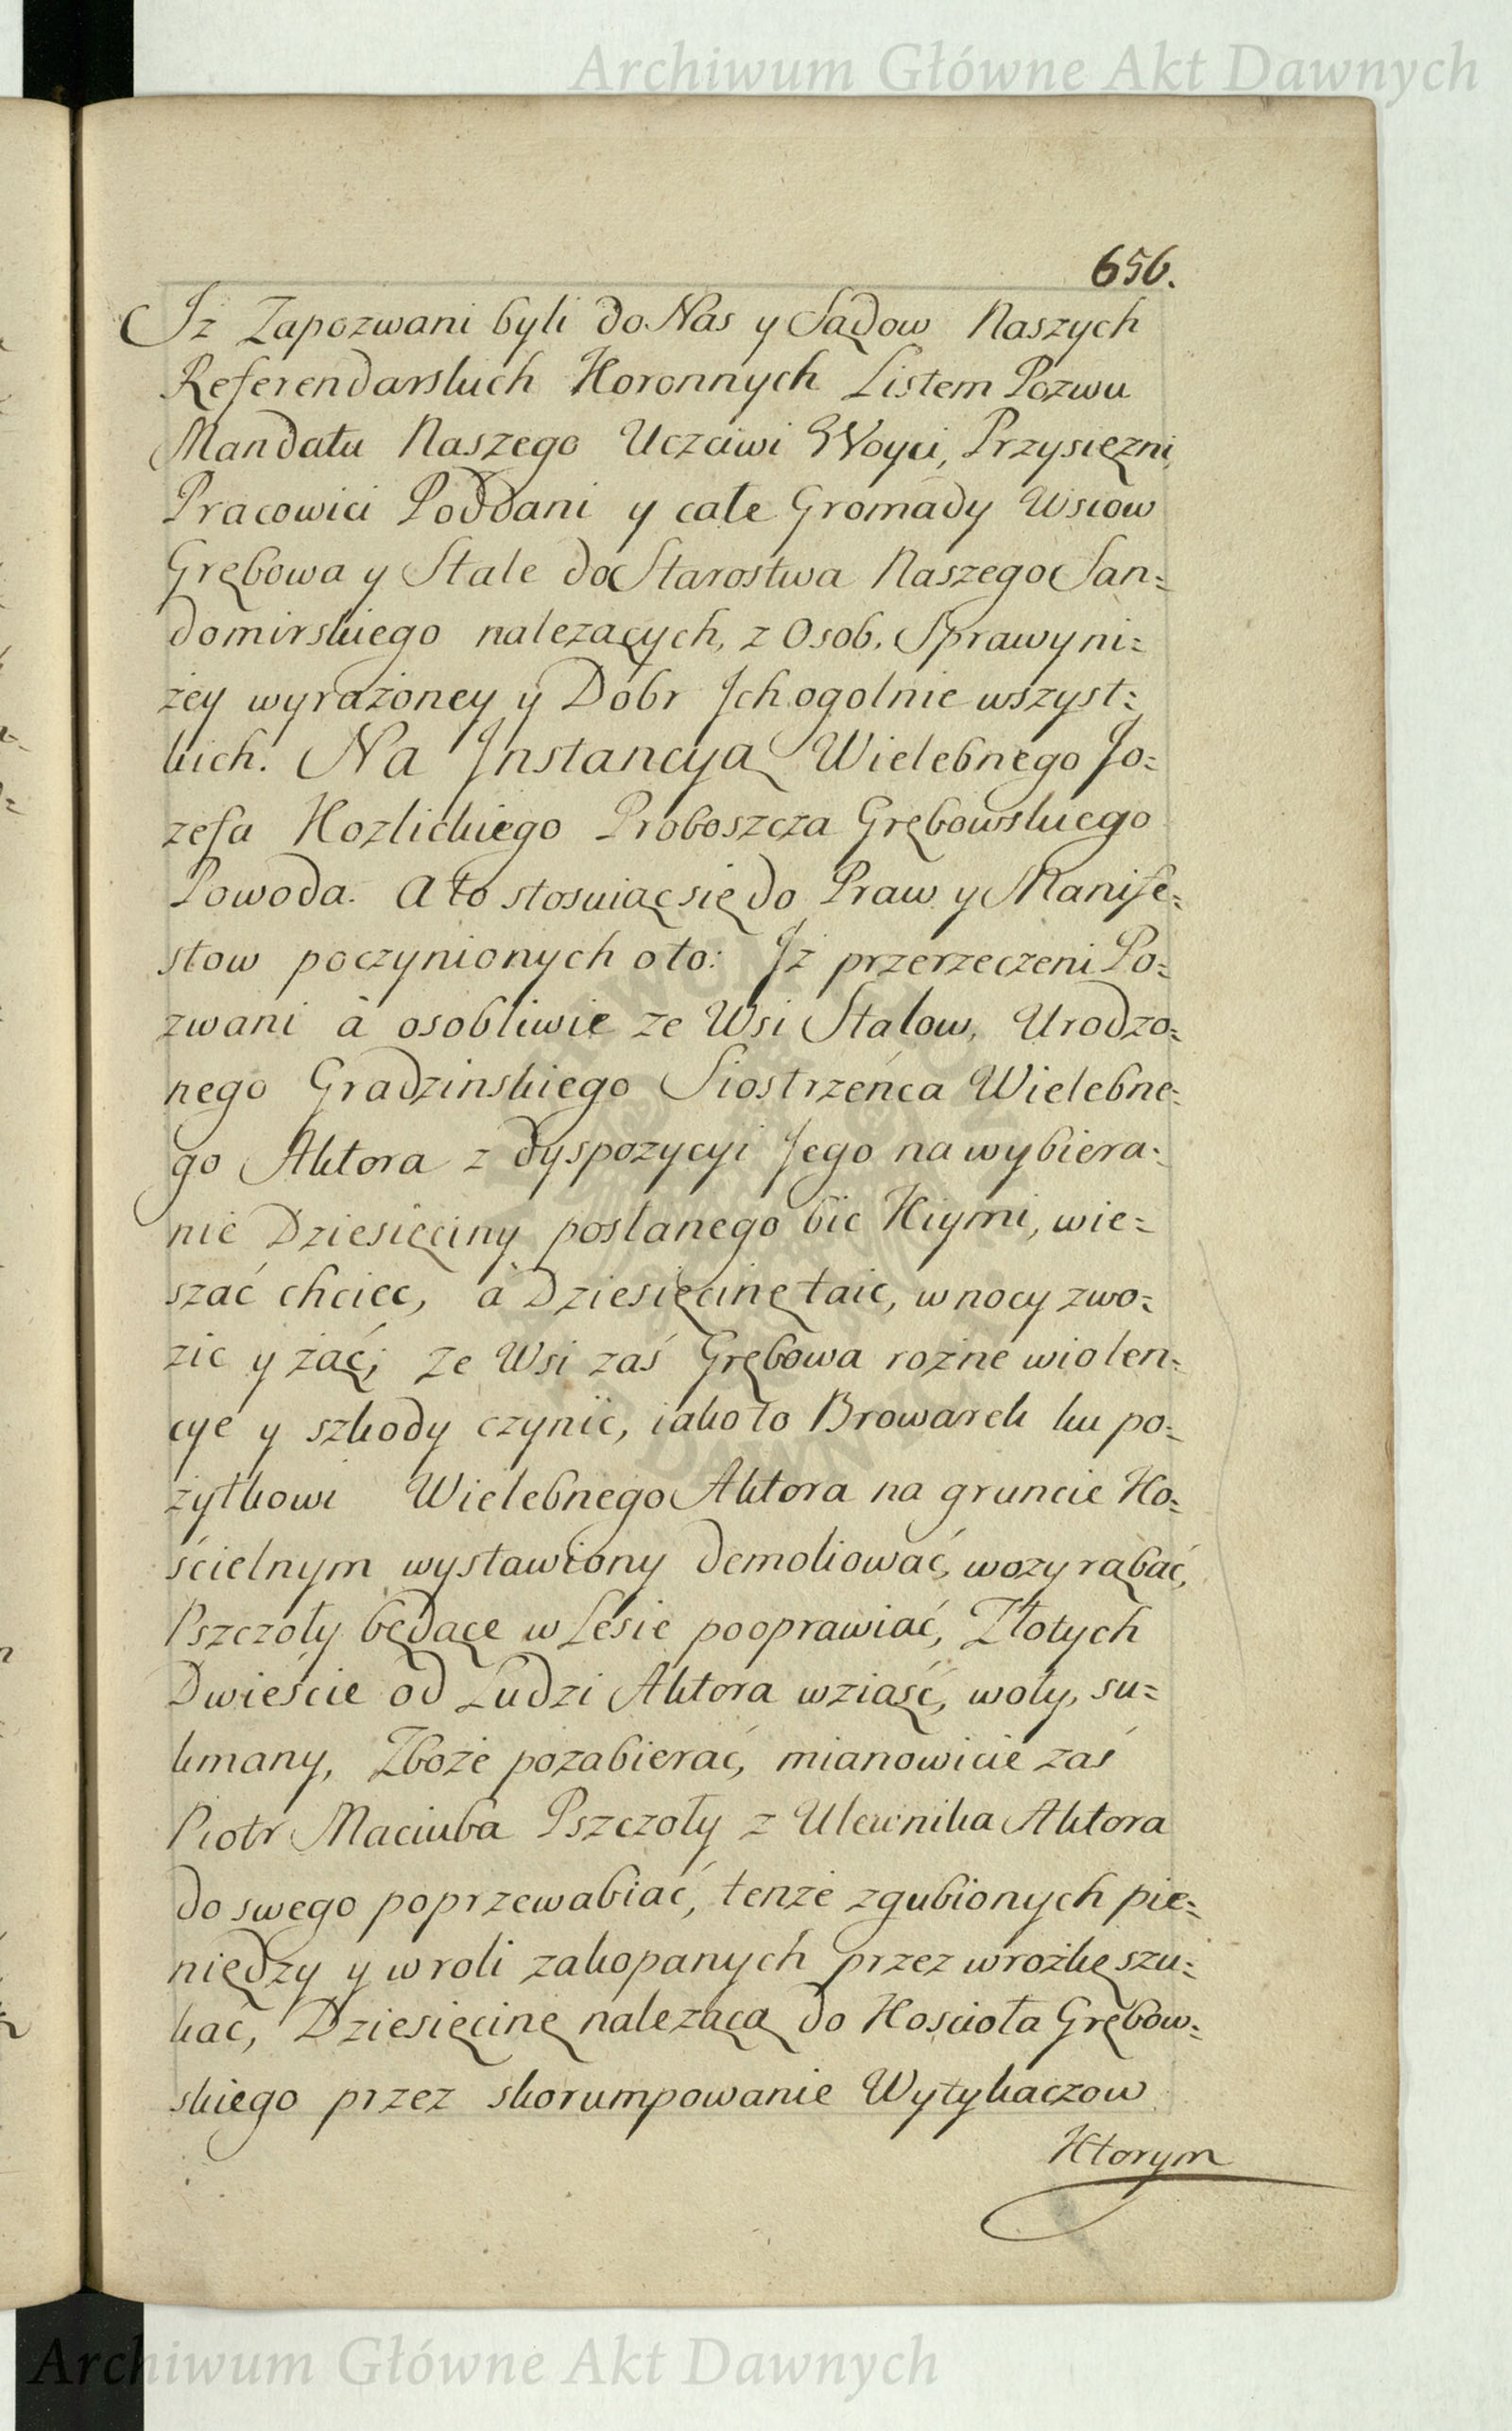 Archiwum Główne Akt Dawnych
656.
Jż Zapozwani byli do Nas y Sądow Naszych
Referendarskich Koronnych Listem Pozwu
Mandatu Naszego Uczciwi Woyci, Przysięzni,
Pracowici Poddani y całe Gromady Wsiow
Grębowa y Stale do Starostwa Naszego San=
domirskiego nalezących, z Osob, Sprawy ni=
żey wyrażoney y Dobr Jch ogolnie wszyst=
kich. Na Jnstancyą Wielebnego Jo=
zefa Kozlickiego Proboszcza Grębowskiego
Powoda. A to stosuiąc się do Praw y Manife=
stow poczynionych oto: Jż przerzeczeni Po=
zwani à osobliwie ze Wsi Stalow, Urodzo=
nego Gradzinskiego Siostrzeńca Wielebne=
go Aktora z dyspozycyi Jego na wybiera=
nie Dziesięciny posłanego bić Kiymi, wie=
szać chciec, à Dziesięcinę taic, w nocy zwo=
zic y żąć; Ze Wsi zaś Grębowa rożne wiolen=
cye y szkody czynić, iako to Browarek ku po=
żytkowi Wielebnego Aktora na gruncie Ko=
ścielnym wystawiony demoliować, wozy rąbać,
Pszczoły będące w Lesie pooprawiać, Złotych
Dwieście od Ludzi Aktora wziąść, woły, su=
kmany, Zboże pozabierać, mianowicie zaś
Piotr Maciuba Pszczoły z Ulewnika Aktora
do swego poprzewabiać, tenże zgubionych pie=
niędzy y w roli zakopanych przez wrożkę szu=
kać, Dziesięcinę nalezącą do Koscioła Grębow=
skiego przez skorumpowanie Wytykaczow
Ktorym
Archiwum Główne Akt Dawnych